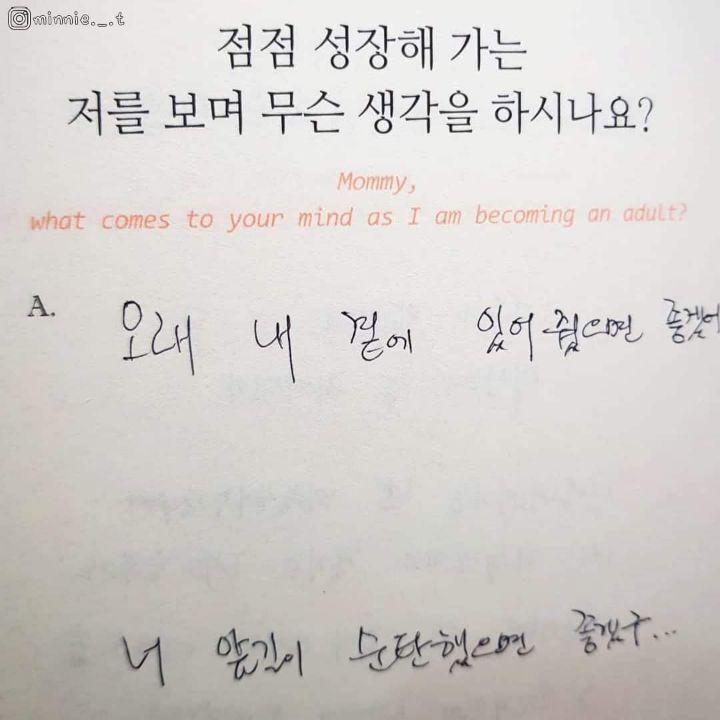 minnie._.t
점점 성장해 가는
저를 보며 무슨 생각을 하시나요?
Mommy,
what comes to your mind as I am becoming an adult?
A. 오래 내 곁에 있어줬으면 좋겠어
너 앞길이 순탄했으면 좋겠구...